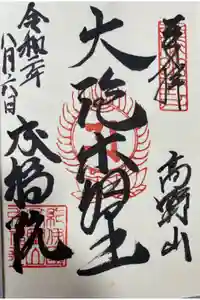 奉拝
高野山
大随求明王
令和二年
八月六日
成福院